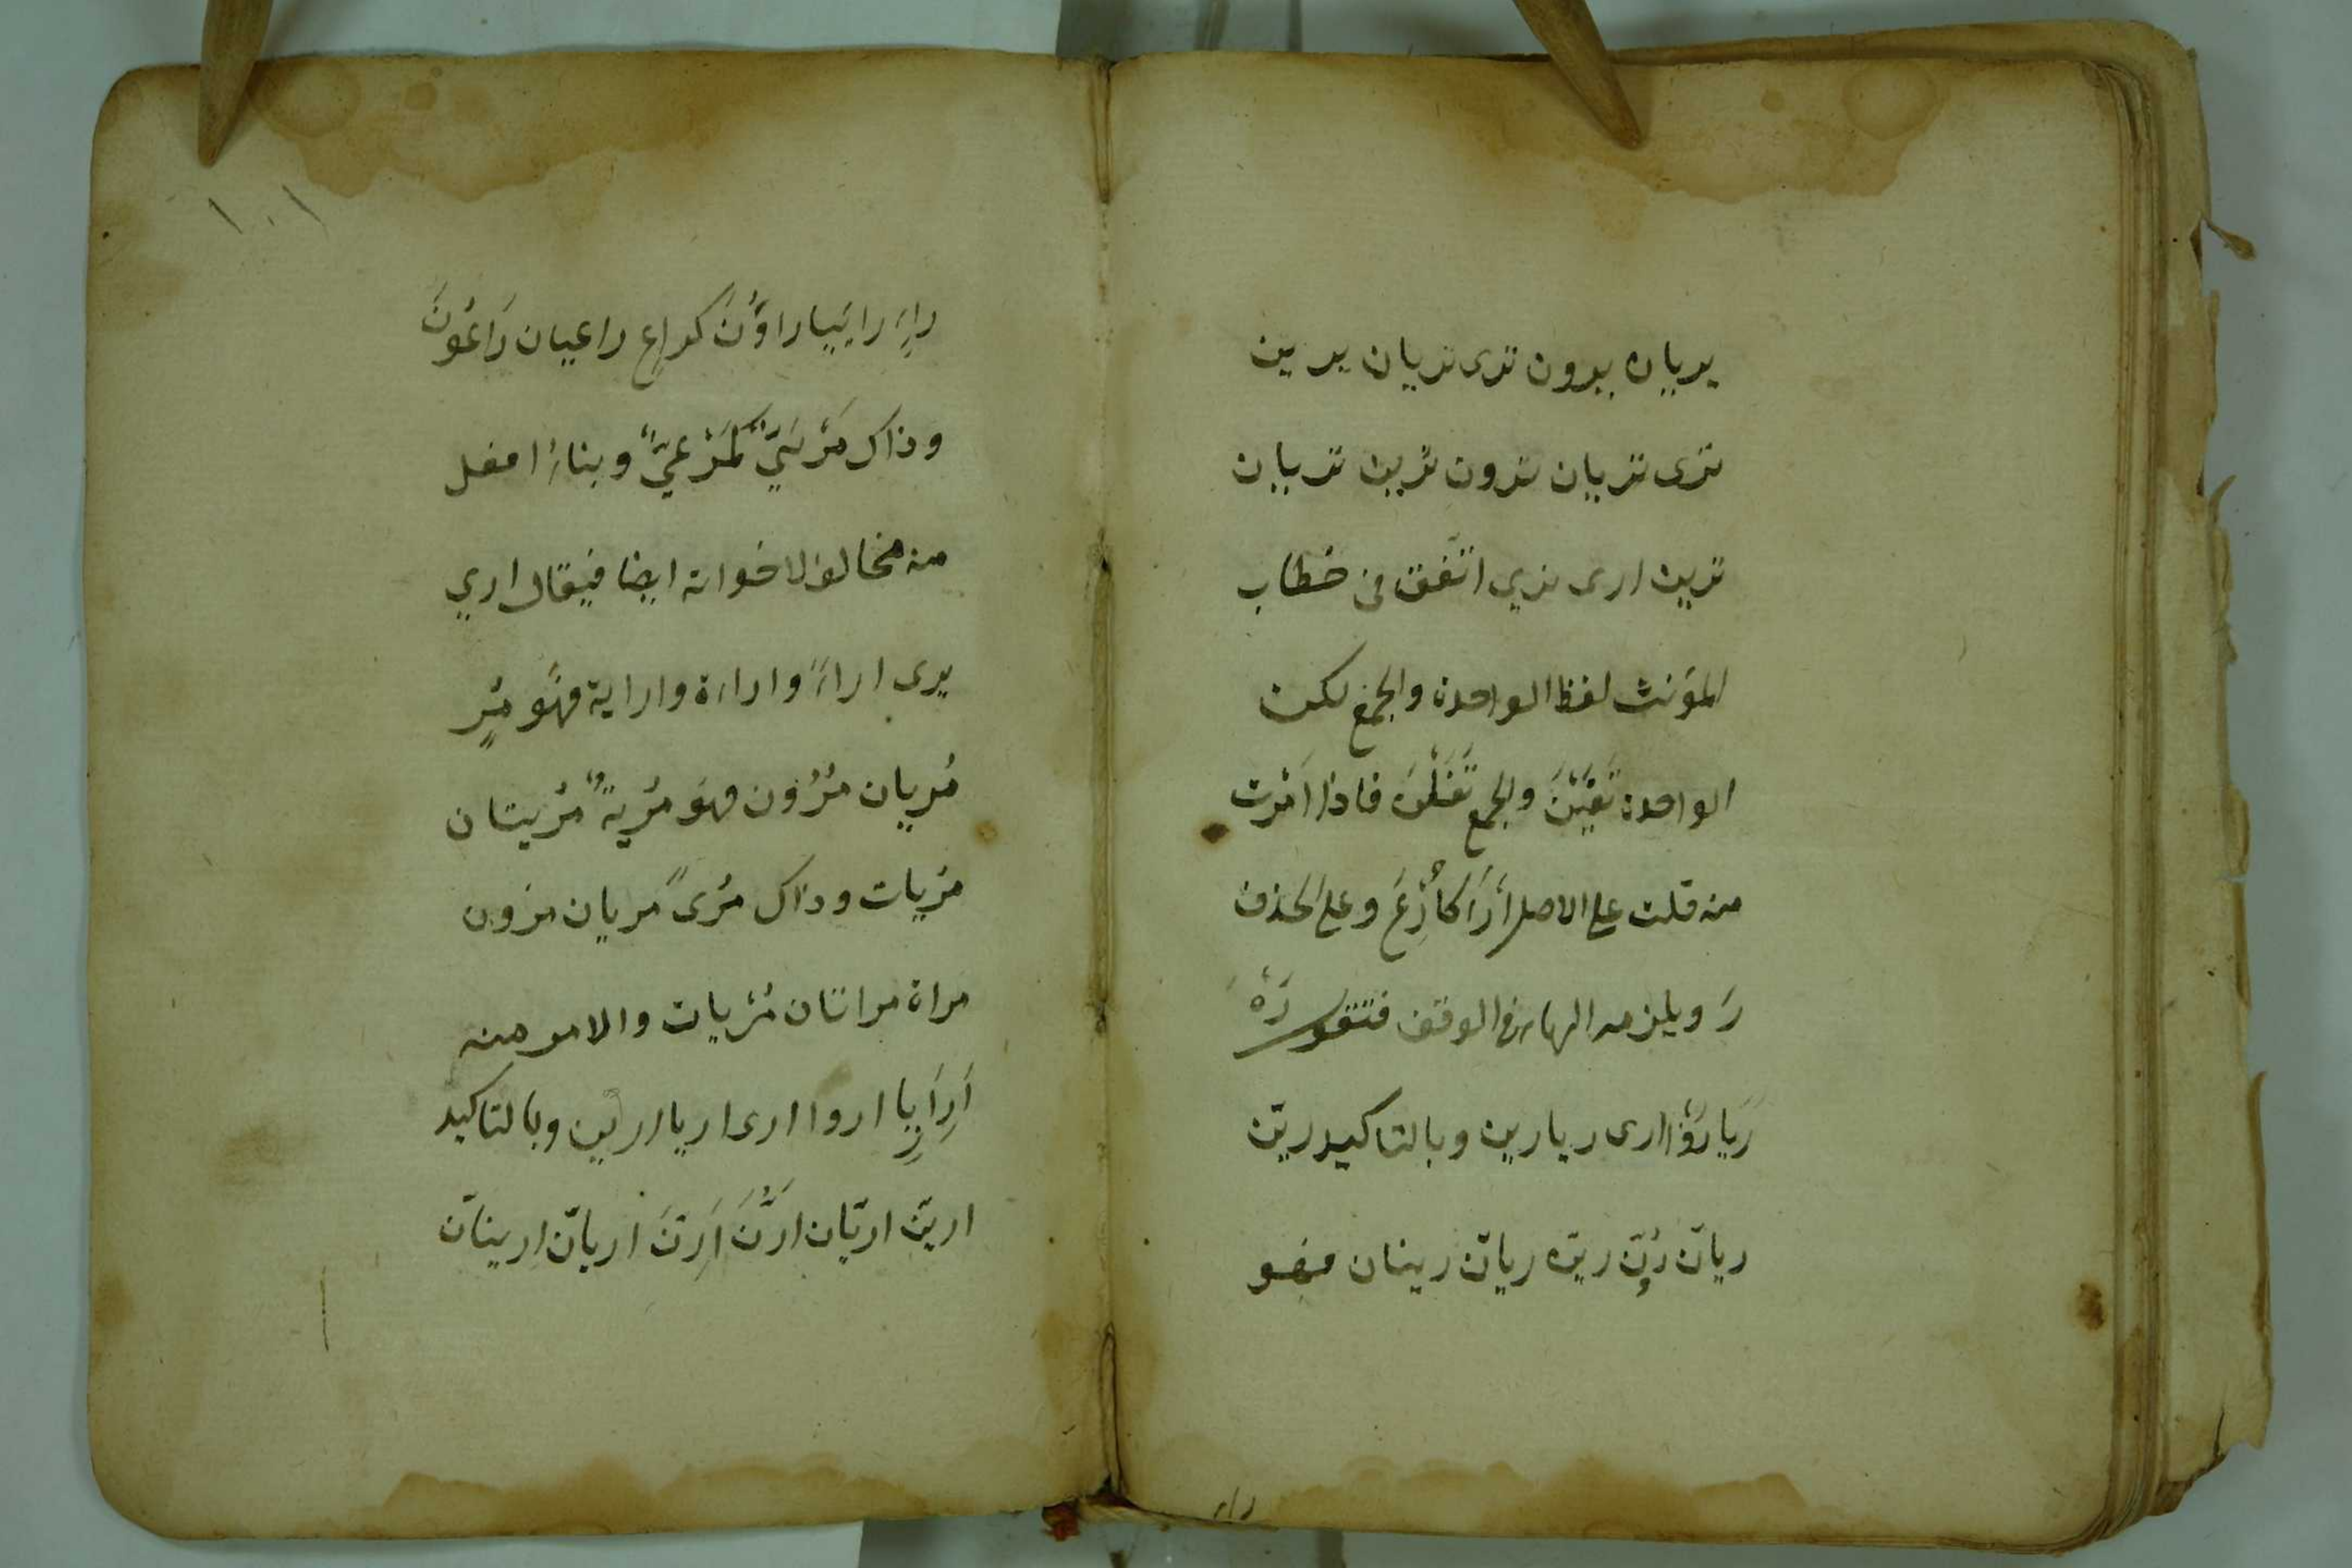 يريان يرون ترى تريان يرين
ترى تريان ترون ترين تريان
ترين ارى نري اتّفق في خطاب
المؤنث لفظ الواحدة والجمع لكن
الواحدة تَفَيْنَ والجمع تَفَلْنَ فاذا اَمَرْت
منه قلت على الاصل اَرْاَ كَاَرْعَ وعلى الحذف
رَ ويلزمه الهاء في الوقف فتقول رَهْ
رَيَا رَوْا رى ريا رين وبالتاكيد ريَنّ
ريانّ رَوُنّ رينّ ريانّ رينان فهو
راء
١٠١
راءٍ رائيان راؤُنَ كراعٍ راعيان رَاعُونَ
وذاك مَرْئيٌّ كمَرْعيٍّ وبناء افعل
منه مخالف لاخواته ايضا فيقال اري
يرى اراءً واراءة واراية فهَو مُرٍ
مُريان مُرُون فهَو مُريةٌ مُريتان
مُريات وذاك مُرىً مريان مرون
مراة مراتان مُرَيات والامر منه
اَرِ اَرِيا اروا ارى اريا ارين وبالتاكيد
ارينّ اريّان ارُنَّ اَرِنَّ اريانّ ارينانّ